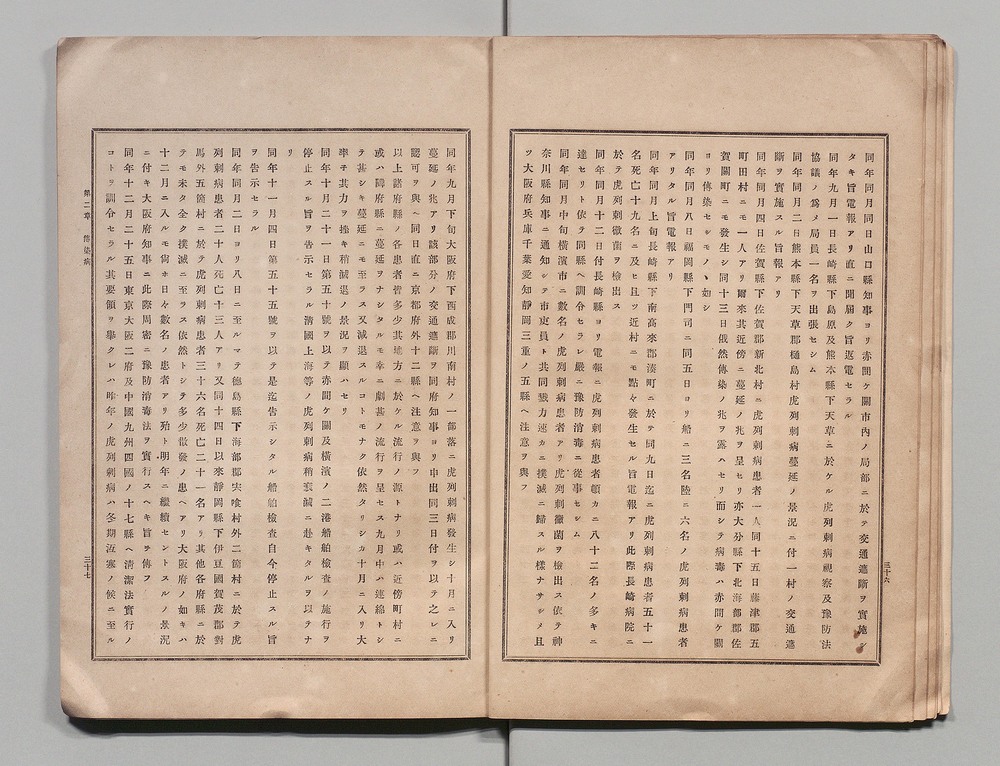 同年同月同日山口縣知事ヨリ赤間ケ關市內ノ局部ニ於テ交通遮斷ヲ實施シ
タキ旨電報アリ直ニ聞屆ク旨返電セラル
同年九月一日長崎縣下島原及熊本縣下天草ニ於ケル虎列剌病視察及豫防法
協議ノ爲メ局員一名ヲ出張セシム
同年同月二日熊本縣下天草郡樋島村虎列剌病蔓延ノ景況ニ付一村ノ交通遮
斷ヲ實施スル旨報アリ
同年同月四日佐賀縣下佐賀郡新北村ニ虎列剌病患者一人同十五日藤津郡五
町田村ニモ一人アリ爾來其近傍ニ蔓延ノ兆ヲ呈セリ亦大分縣下北海部郡佐
賀關町ニモ發生シ同十三日俄然傳染ノ兆ヲ露ハセリ而シテ病毒ハ赤間ケ關
ヨリ傳染セシモノヽ如シ
同年同月八日福岡縣下門司ニ同五日ヨリ船ニ三名陸ニ六名ノ虎列剌病患者
アリタル旨電報アリ
同年同月上旬長崎縣下南高來郡湊町ニ於テ同九日迄ニ虎列剌病患者五十一
名死亡十九名ニ及ヒ且ツ近村ニモ點々發生セル旨電報アリ此際長崎病院ニ
於テ虎列剌黴菌ヲ檢出ス
同年同月十二日付長崎縣ヨリ電報ニ虎列剌病患者頓カニ八十二名ノ多キニ
達セリト依テ同縣ヘ訓令セラレ嚴ニ豫防消毒ニ從事セシム
同年同月中旬橫濱市ニ數名ノ虎列剌病患者アリ虎列剌黴菌ヲ檢出ス依テ神
奈川縣知事ニ通知シテ市吏員ト共同戮力速カニ撲滅ニ歸スル樣ナサシメ且
ツ大阪府兵庫千葉愛知靜岡三重ノ五縣ヘ注意ヲ與フ
三十六
同年九月下旬大阪府下西成郡川南村ノ一部落ニ虎列剌病發生シ十月ニ入リ
蔓延ノ兆アリ該部分ノ交通遮斷ヲ同府知事ヨリ申出同三日付ヲ以テ之レニ
認可ヲ與ヘ同日直ニ京都府外十二縣ヘ注意ヲ與フ
以上諸府縣ノ各患者皆多少其地方ニ於ケル流行ノ源トナリ或ハ近傍町村ニ
或ハ隣府縣ニ蔓延ヲナシタルモ幸ニ劇甚ノ流行ヲ呈セス九月中ハ連綿トシ
テ甚シキ蔓延ニモ至ラス又減退スルコトモナク依然タリシカ十月ニ入リ大
率子其力ヲ挫キ稍減退ノ景況ヲ顯ハセリ
同年十月二十一日第五十號ヲ以テ赤間ケ關及橫濱ノ二港船舶檢查ノ施行ヲ
停止スル旨ヲ告示セラル淸國上海等ノ虎列剌病稍衰減ニ赴キタルヲ以テナ
リ
同年十一月四日第五十五號ヲ以テ是迄告示シタル船舶檢查自今停止スル旨
ヲ告示セラル
同年同月二日ヨリ八日ニ至ルマテ德島縣下海部郡宍喰村外二箇村ニ於テ虎
列剌病患者二十人死亡十三人アリ又同十四日以來靜岡縣下伊豆國賀茂郡對
馬外五箇村ニ於テ虎列剌病患者三十六名死亡二十一名アリ其他各府縣ニ於
テモ未タ全ク撲滅ニ至ラス依然トシテ多少散發ノ患ヘアリ大阪府ノ如キハ
十二月ニ入ルモ尙ホ日々數名ノ患者アリ殆ト明年ニ繼續セントスルノ景況
ニ付キ大阪府知事ニ此際周密ニ豫防消毒法ヲ實行スヘキ旨ヲ傳フ
同年十二月二十五日東京大阪二府及中國九州四國ノ十七縣ヘ淸潔法實行ノ
コトヲ訓令セラル其要領ヲ擧クレハ昨年ノ虎列剌病ハ冬期沍寒ノ候ニ至ル
第二章 傳染病
三十七